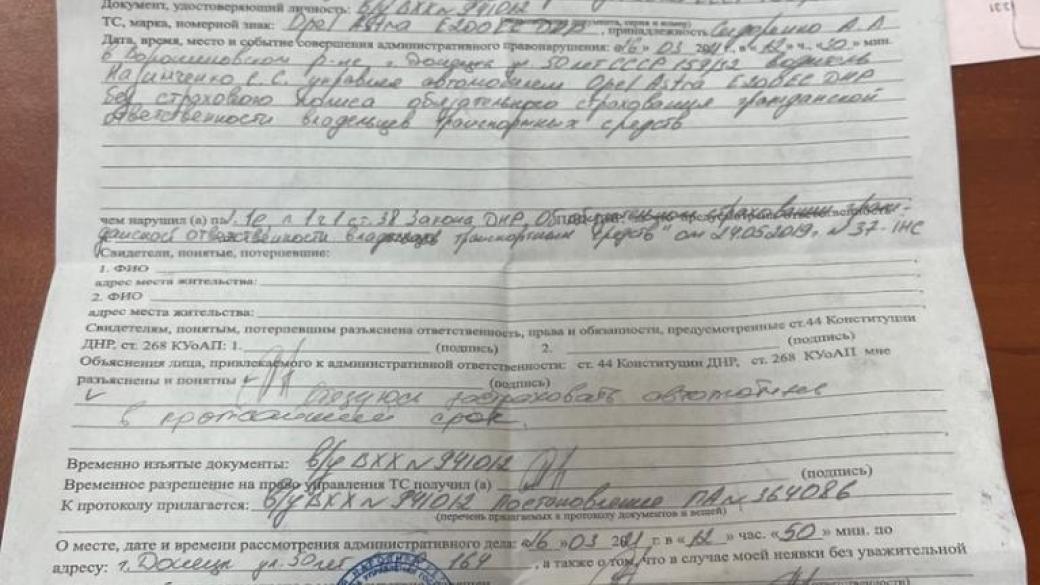 Документ, удостоверяющий личность: в/у ВХХ № 941012
ТС, марка, номерной знак: Opel Astra E200EC DNP, принадлежность Сидоренко А. Л.
Дата, время, место и событие совершения административного правонарушения: «16» 03 2021 г. в «12» ч. «30» мин.
в Ворошиловском р-не г. Донецка ул. 50 лет СССР 159/32 водитель
С. С. управлял автомобилем Opel Astra E200EC DNP
без страхового полиса обязательного страхования гражданской
ответственности владельцев транспортных средств
чем нарушил (а) п. 1 ч 1 ст. 38 Закона ДНР, Об страховании граж-
данской ответственности владельцев транспортных средств" от 24.05.2019г. № 37-IHC
Свидетели, понятые, потерпевшие:
1. ФИО
адрес места жительства:
2. ФИО
адрес места жительства:
Свидетелям, понятым, потерпевшим разъяснена ответственность, права и обязанности, предусмотренные ст.44 Конституции
ДНР, ст. 268 КУоАП: 1. (подпись) 2. (подпись)
Объяснения лица, привлекаемого к административной ответственности: ст. 44 Конституции ДНР, ст. 268 КУоАП мне
разъяснены и понятны (подпись)
застраховать автомобиль
в кротчайший срок.
Временно изъятые документы: в/у ВХХ № 941012
Временное разрешение на право управления ТС получил (а) (подпись)
К протоколу прилагается: в/у ВХХ № 941012 Постановление ПА № 364086
(перечень прилагаемых к протоколу документов и вещей)
О месте, дате и времени рассмотрения административного дела: «16» 03 2021 г. в «12» час. «50» мин. по
адресу: г. Донецк ул. 50 лет 164, а также о том, что в случае моей неявки без уважительной